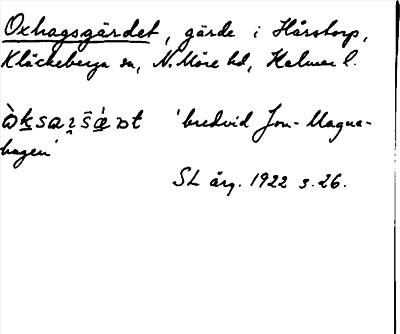 Oxhagsgärdet, gärde i Hårstorp,
Kläckeberga sn, N. Möre hd, Kalmar l.
'bredvid Jon-Magna-
hagen'
SL årg. 1922 s. 26.